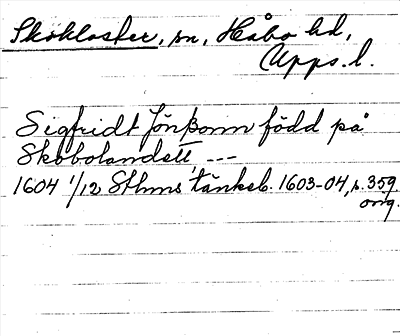 Skokloster, sn, Håbo hd,
Upps. l.
Sigfridt Jönßonn född på
Skobolandett ---
1604 1/12 Sthms tänkeb. 1603-04, s. 359
orig.